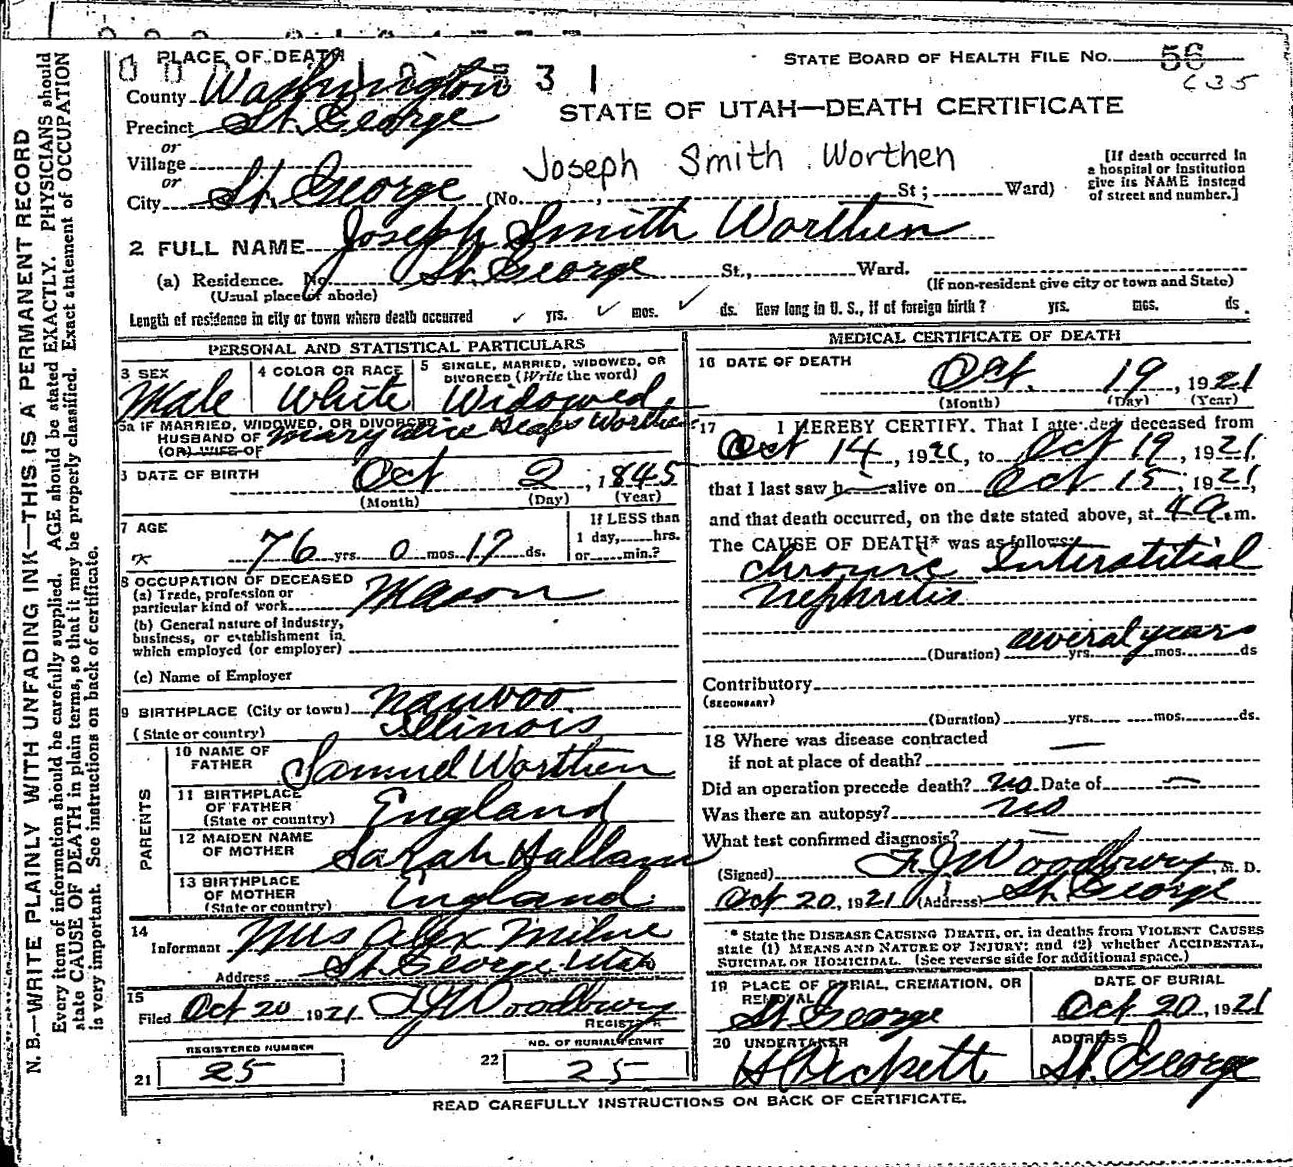 1 PLACE OF DEATH
STATE BOARD OF HEALTH FILE No. 56
635
County Washington 3 1
STATE OF UTAH—DEATH CERTIFICATE
Precinct St. George
or
Village
or
Joseph Smith Worthen
[If death occurred in
a hospital or institution
give its NAME instead
of street and number.]
City St. George (No. , St; Ward)
2 FULL NAME Joseph Smith Worthen
(a) Residence. No. St. George St., Ward.
(Usual place of abode)
(If non-resident give city or town and State)
Length of residence in city or town where death occurred yrs. mos. ds. How long in U. S., if of foreign birth? yrs. mos. ds.
PERSONAL AND STATISTICAL PARTICULARS
3 SEX
Male
4 COLOR OR RACE
White
5 SINGLE, MARRIED, WIDOWED, OR
DIVORCED (Write the word)
Widowed
5a IF MARRIED, WIDOWED, OR DIVORCED
HUSBAND OF Mary Worthen
(OR) WIFE OF
6 DATE OF BIRTH Oct 2, 1845
(Month) (Day) (Year)
7 AGE
76 yrs. 0 mos. 17 ds.
If LESS than
1 day, hrs.
or min.?
8 OCCUPATION OF DECEASED
(a) Trade, profession or
particular kind of work Mason
(b) General nature of industry,
business, or establishment in
which employed (or employer)
(c) Name of Employer
9 BIRTHPLACE (City or town) Nauvoo
(State or country) Illinois
PARENTS
10 NAME OF
FATHER Samuel Worthen
11 BIRTHPLACE
OF FATHER
(State or country) England
12 MAIDEN NAME
OF MOTHER Sarah Hallam
13 BIRTHPLACE
OF MOTHER
(State or country) England
14
Informant Mrs Alex Milne
Address St. George Utah
15
Filed Oct 20 1921 F J Woodbury
REGISTRAR
REGISTERED NUMBER
21 25
NO. OF BURIAL PERMIT
22 25
MEDICAL CERTIFICATE OF DEATH
16 DATE OF DEATH
Oct. 19, 1921
(Month) (Day) (Year)
17 I HEREBY CERTIFY, That I attended deceased from
Oct 14, 1921, to Oct 19, 1921
that I last saw h alive on Oct 15, 1921,
and that death occurred, on the date stated above, at 4 a.m.
The CAUSE OF DEATH* was as follows:
Chronic Interstitial
Nephritis
several years
(Duration) yrs. mos. ds
Contributory
(SECONDARY)
(Duration) yrs. mos. ds.
18 Where was disease contracted
if not at place of death?
Did an operation precede death? no Date of
Was there an autopsy? no
What test confirmed diagnosis?
(Signed) F. J. Woodbury, M. D.
Oct 20, 1921 (Address) St George
* State the DISEASE CAUSING DEATH, or, in deaths from VIOLENT CAUSES
state (1) MEANS AND NATURE OF INJURY; and (2) whether ACCIDENTAL,
SUICIDAL OR HOMICIDAL. (See reverse side for additional space.)
19 PLACE OF BURIAL, CREMATION, OR
REMOVAL
St George
DATE OF BURIAL
Oct 20, 1921
20 UNDERTAKER
ADDRESS
St. George
READ CAREFULLY INSTRUCTIONS ON BACK OF CERTIFICATE.
N. B.—WRITE PLAINLY WITH UNFADING INK—THIS IS A PERMANENT RECORD
Every item of information should be carefully supplied. AGE should be stated EXACTLY. PHYSICIANS should
state CAUSE OF DEATH in plain terms, so that it may be properly classified. Exact statement of OCCUPATION
is very important. See instructions on back of certificate.